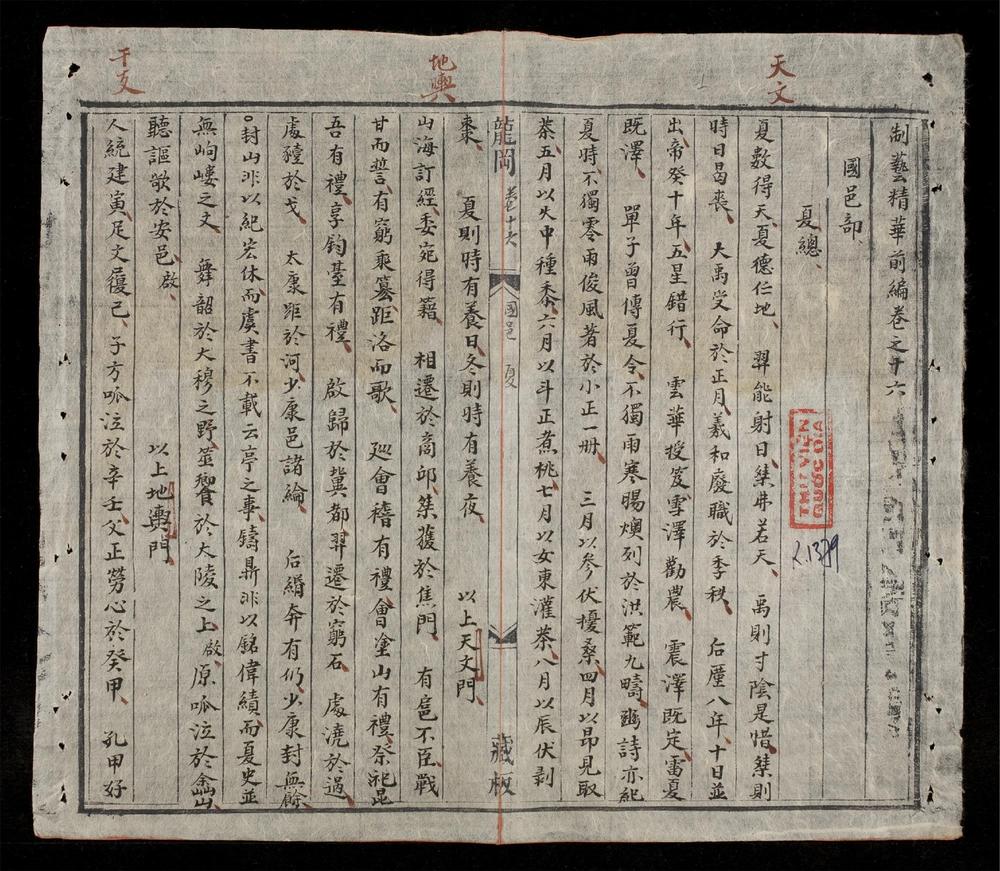 天文
制藝精華前編卷之十六
國邑部
夏總
夏數得天夏德仁地 羿能射日桀弗若天 禹則寸陰是惜桀則
時日曷喪 大禹受命於正月羲和廢職於季秋 后厪八年十日並
出帝癸十年五星錯行 雲華授笈雪澤勸農 震澤既定雷夏
既澤 單子曾傳夏令不獨雨寒暘燠列於洪範九疇豳詩亦紀
夏時不獨零雨俊風著於小正一冊 三月以參伏擾桑四月以昴見取
荼五月以大中種黍六月以斗正煮桃七月以女東灌荼八月以辰伏剥
地輿
龍岡 卷十六 國邑 夏 藏板
棗 夏則時有養日冬則時有養夜 以上天文門
山海訂經委宛得籍 相遷於商邱桀獲於焦門 有扈不臣戰
甘而誓有窮乘簒距洛而歌 巡會稽有禮會塗山有禮祭祀昆
吾有禮享鈞臺有禮 啟歸於冀都羿遷於窮石 處澆於過
處豷於戈 太康距於河少康邑諸綸 后緡奔有仍少康封無餘
封山非以紀宏休而虞書不載云亭之事鑄鼎非以銘偉績而夏史並
無岣嶁之文 舞韶於大穆之野筮饗於大陵之上啟原呱泣於嵞山
聽謳歌於安邑啟 以上地輿門
干支
人統建寅足文履己子方呱泣於辛壬父正勞心於癸甲 孔甲好
THƯ VIỆN
QUỐC GIA
R.1379